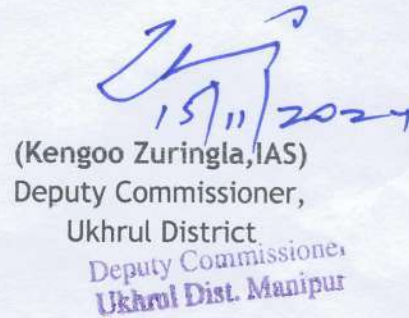 15/11/2024
(Kengoo Zuringla,IAS)
Deputy Commissioner,
Ukhrul District
Deputy Commissioner
Ukhrul Dist. Manipur